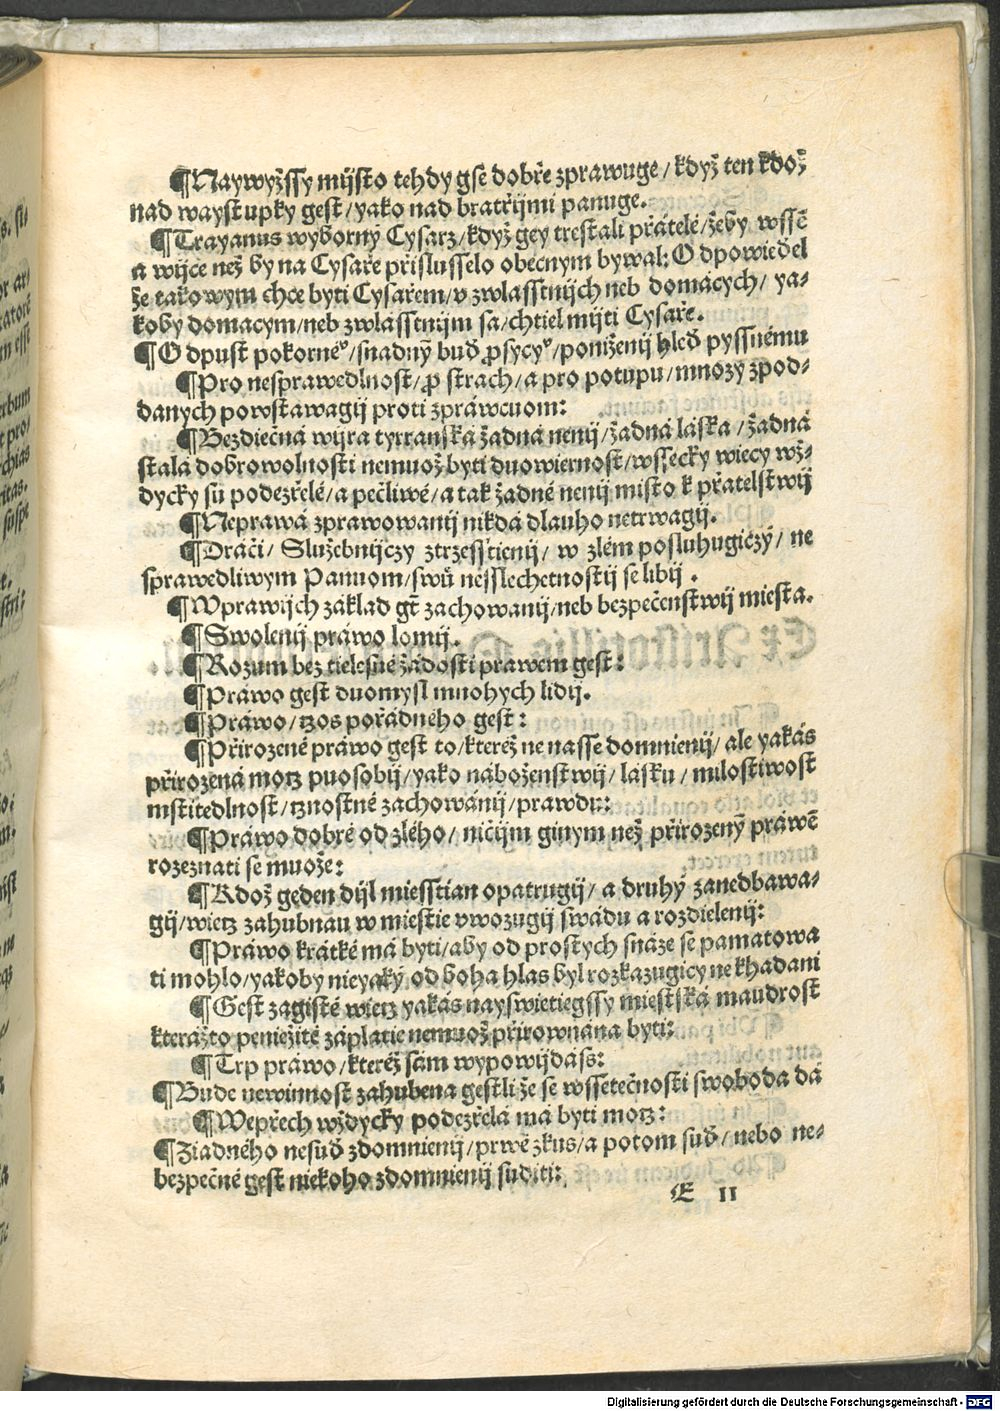 ¶Naywyžssy mijsto tehdy gse dobře zprawuge/když ten kdož
nad waystupky gest/yako nad bratřijmi panuge.
¶Trayanus wyborny Cysarz/když gey trestali přátelé/žeby wssē
a wijce než by na Cysaře přislusselo obecnym bywal: Odpowiedel
že takowym chce byti Cysařem/v zwlasstnijch neb domácych/ ya-
koby domacym/neb zwlasstnijm sa/chtiel mijti Cysaře.
¶Odpust pokorné°/snadný buď ꝓsycy°/poniženij hleď pyssnému
¶Pro nesprawedlnost/ꝓ strach/a pro potupu/mnozy zpod-
danych powstawagij proti zpráwcuom:
¶Bezdiečná wijra tyrranská žádná nenij/žádná láska/žádná
stalá dobrowolnosti nemuož byti duowiernost/wssecky wiecy wž-
dycky sú podezřelé/a pečliwé/a tak žadné nenij misto k přatelstwij
¶Neprawá zprawowanij nikdá dlauho netrwagij.
¶Dráči/ Služebnijczy ztrzesstienij/ w zlém posluhugiczý/ ne
sprawedliwym Pannom/swú nesslechetnostij se libij.
¶Wprawijch základ gt zachowanij/neb bezpečenstwij miesta.
¶Swolenij práwo lomij.
¶Rozum bez tielesné žádosti prawem gest:
¶Práwo gest duomysl mnohych lidij.
¶Práwo/tzos pořádného gest:
¶Přirozené práwo gest to/kteréž ne nasse domnienij/ ale yakás
přirozená motz puosobij/yako náboženstwij/lásku/ milostiwost
mstitedlnost/tznostné zachowánij/prawdu:
¶Práwo dobré od zlého/ ničijm ginym než přirozený práwē
rozeznati se muože:
¶Kdož geden dijl miesstian opatrugij/ a druhý zanedbawa-
gij/wietz zahubnau w miestie vwozugij swádu a rozdielenij:
¶Práwo krátké má byti/aby od prostych snáze se pamatowa
ti mohlo/yakoby nieyaký od boha hlas byl rozkazugicy ne khadani
¶Gest zagisté wietz yakás nayswietiegssy miestská maudrost
kterážto peniežité záplatie nemuož přirownána byti:
¶Trp práwo/kteréž sám wypowijdáss:
¶Bude newinnost zahubena gestli že se wssetečnosti swoboda dá
¶Wepřech wždycky podezřelá má byti motz:
¶Žiadného nesuď zdomnienij/prwé zkus/a potom suď/nebo ne-
bezpečné gest niekoho zdomnienij suditi:
E II
Digitalisierung gefördert durch die Deutsche Forschungsgemeinschaft - DFG